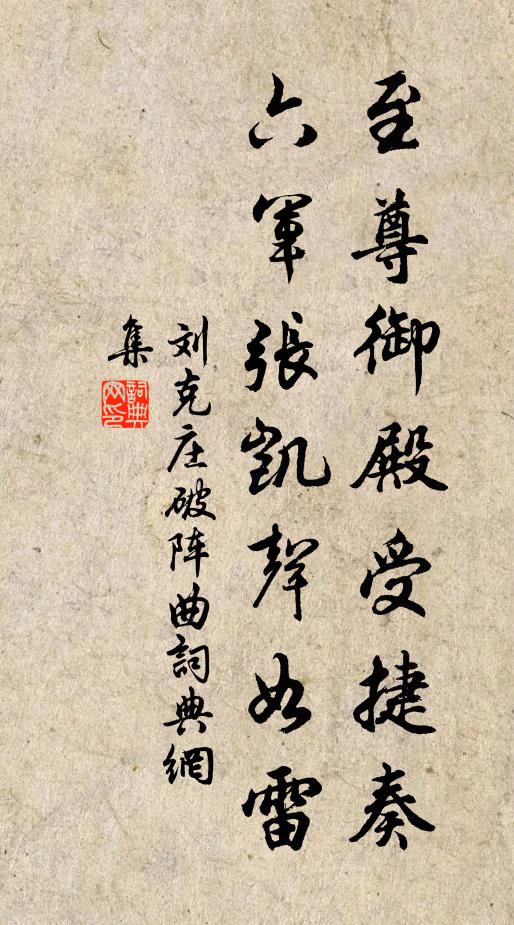 至尊御殿受捷奏
六軍張凱聲如雷
刘克庄破阵曲詞典網
集
詞典网印